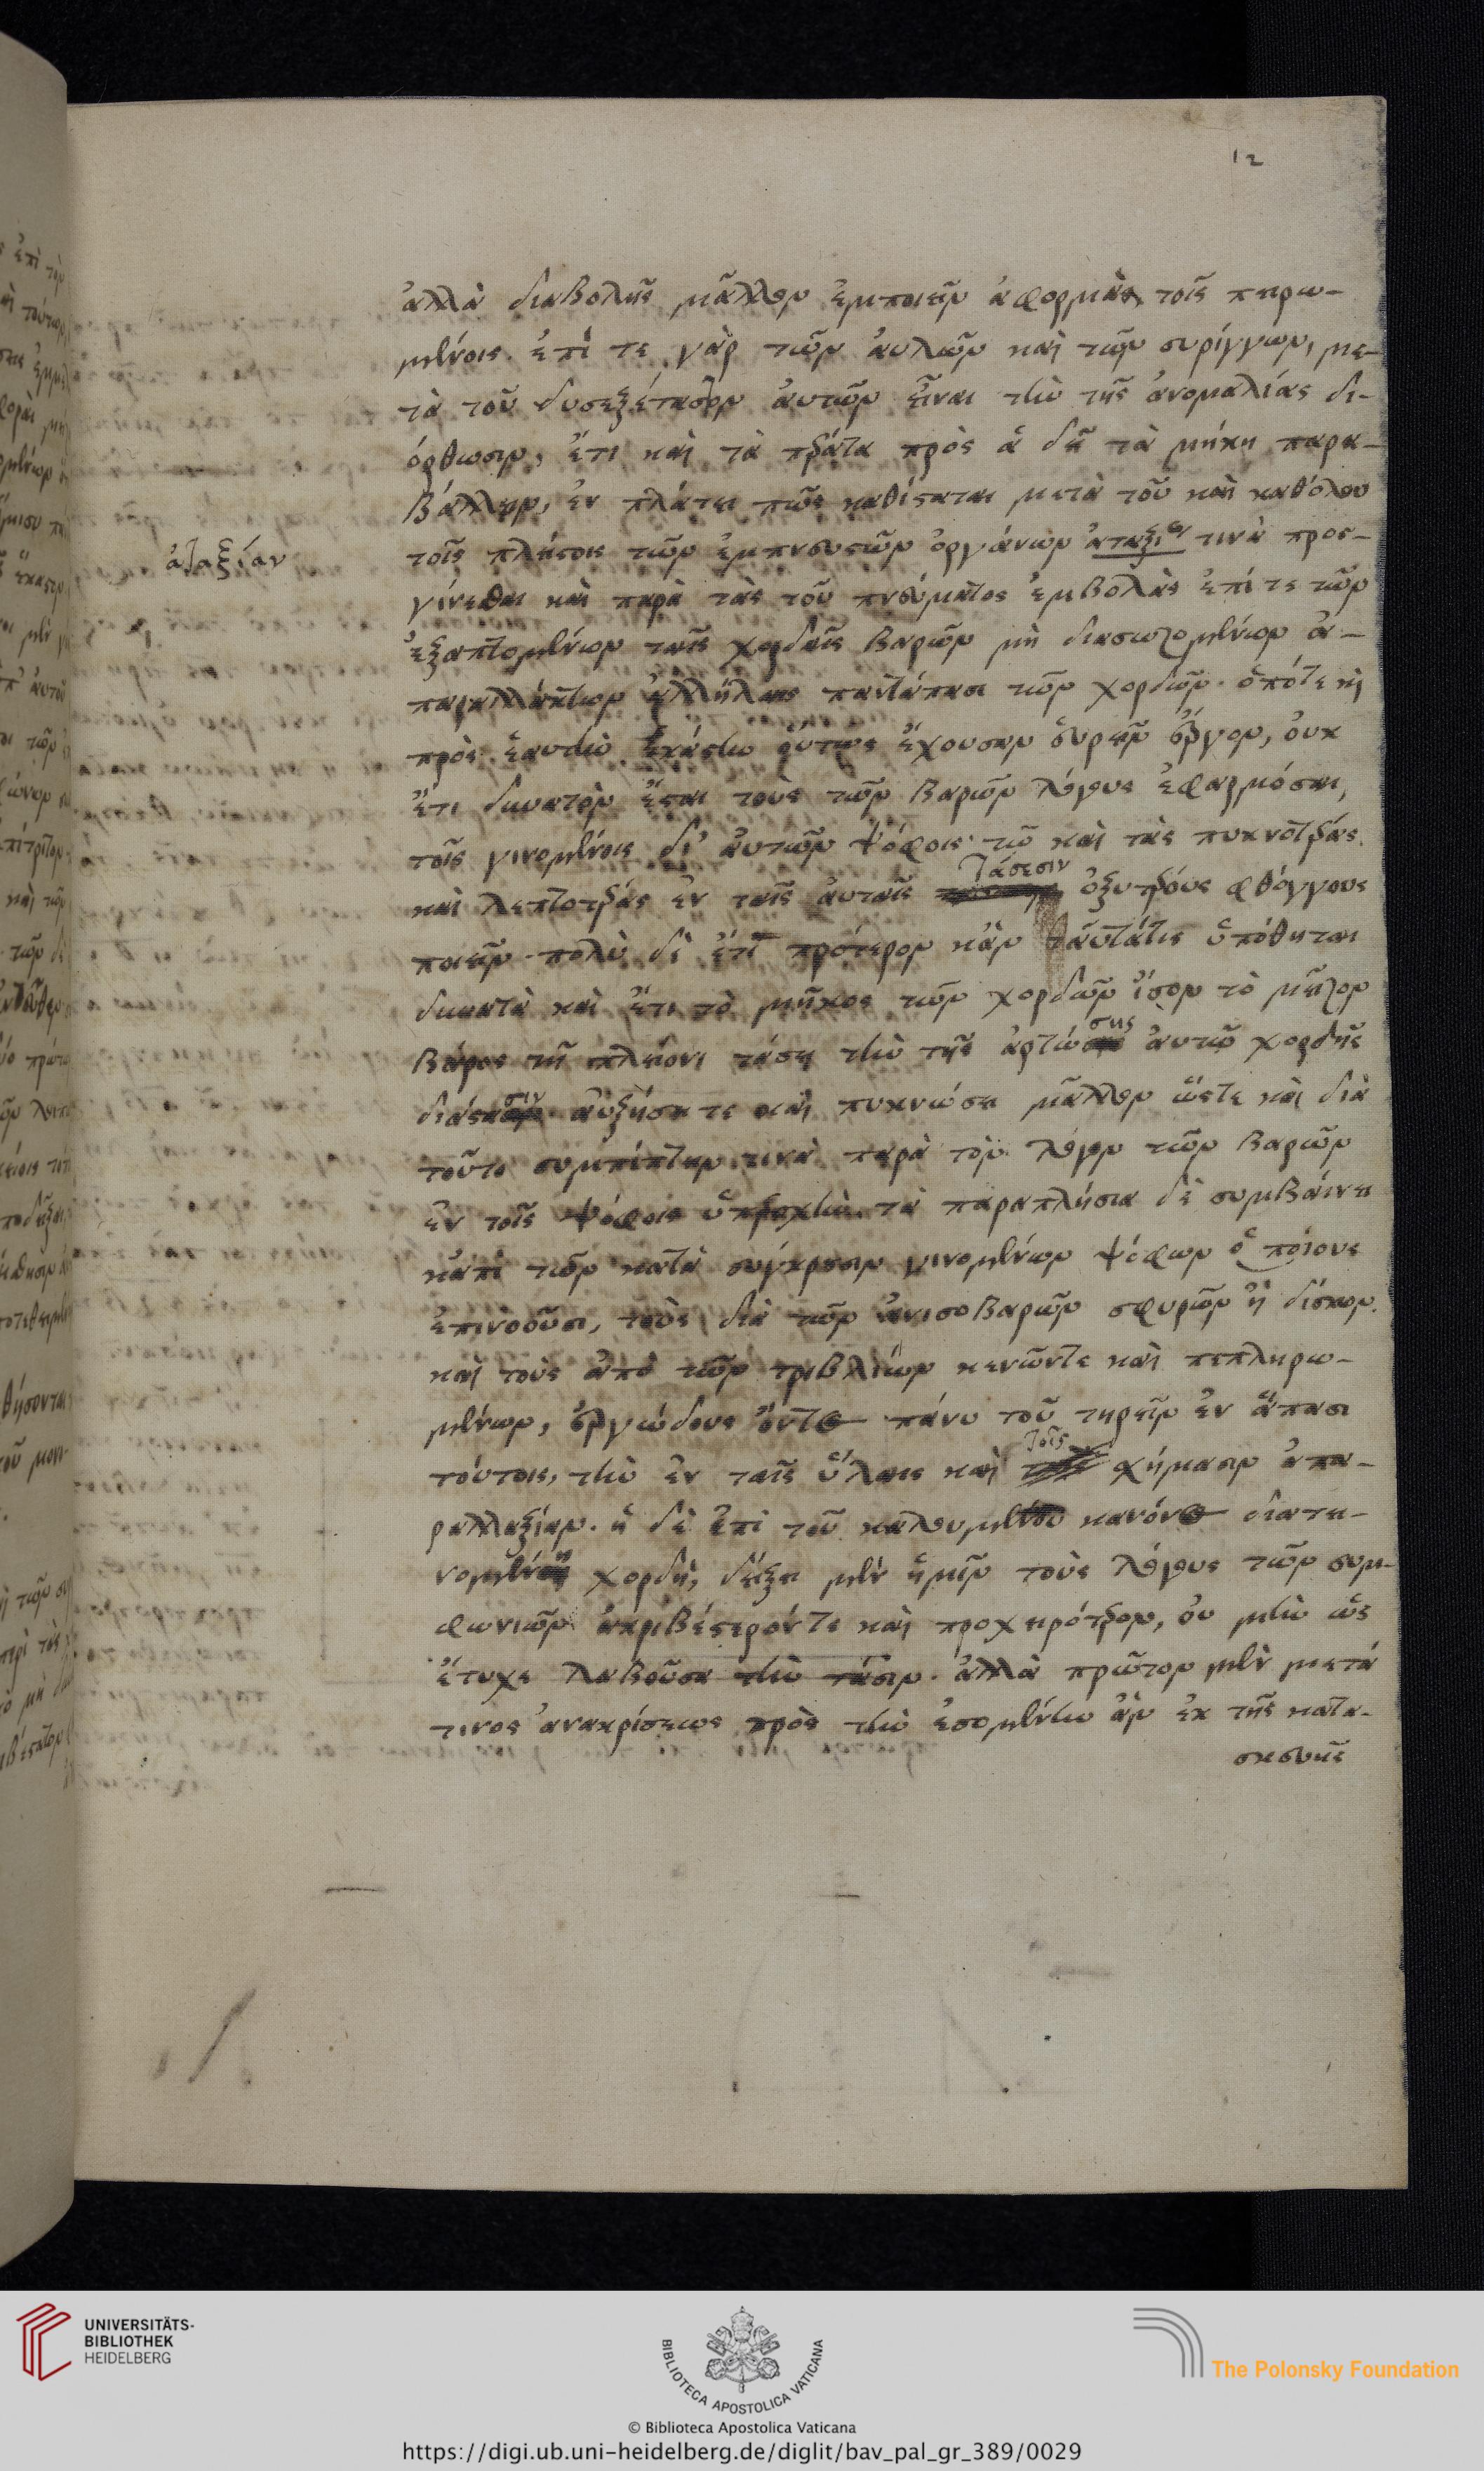 12
ἀλλὰ διαβολῆς μᾶλλον ἐμποιεῖν ἀφορμὰς τοῖς πειρω-
μένοις. ἐπί τε γὰρ τῶν ἀυλῶν καὶ τῶν συρίγγων, με-
τὰ τοῦ δυσεξέταστον ἀυτῶν εἶναι τὴν τῆς ἀνομαλίας δι-
όρθωσιν, ἔτι καὶ τὰ πέρατα πρὸς ἃ δεῖ τὰ μήκη παρα-
βάλλειν, ἐν πλάτει πῶς καθίσταται μετὰ τοῦ καὶ καθόλου
τοῖς πλείστοις τῶν ἐμπνευστῶν ὀργάνων ἀταξίαν τινὰ προσ-
ἀταξίαν
γίνεσθαι καὶ παρὰ τὰς τοῦ πνεύματος ἐμβολὰς ἐπί τε τῶν
ἐξαπτομένων ταῖς χορδαῖς βαρῶν μὴ διασωζομένων ἀ-
παραλλάκτων ἀλλήλαις παντάπασι τῶν χορδῶν. ὁπότε καὶ
πρὸς ἑαυτὴν ἑκάστην οὕτως ἔχουσαν ἑυρεῖν ἔργον, ὀυκ
ἔτι δυνατὸν ἔσται τοὺς τῶν βαρῶν λόγους ἐφαρμόσαι,
τοῖς γινομένοις δι' ἀυτῶν ψόφοις τῶ καὶ τὰς πυκνοτέρας
καὶ λεπτοτέρας ἐν ταῖς ἀυταῖς τάσεσιν ὀξυτέρους φθόγγους
ποιεῖν. πολὺ δὲ ἔτι πρότερον κἂν ταῦτά τις ὑπόθηται
δυνατὰ καὶ ἔτι τὸ μῆκος τῶν χορδῶν ἴσον τὸ μεῖζον
βάρος τῇ πλείονι τάσει τὴν τῆς ἀρτώσης ἀυτῶ χορδῆς
διάστασιν ἀυξήσει τε καὶ πυκνώσει μᾶλλον ὥστε καὶ διὰ
τοῦτο συμπίπτειν τινὰ παρὰ τὸν λόγον τῶν βαρῶν
ἐν τοῖς ψόφοις ὑπεροχὴν. τὰ παραπλήσια δὲ συμβαίνει
κἀπὶ τῶν κατὰ σύγκρουσιν γινομένων ψόφων ὁποίους
ἐπινοοῦσι, τοὺς διὰ τῶν ἀνισοβαρῶν σφυρῶν ἢ δίσκων.
καὶ τοὺς ἀπὸ τῶν τρυβλίων κενῶντε καὶ πεπληρω-
μένων, ἐργώδους ὄντος πάνυ τοῦ τηρεῖν ἐν ἅπασι
τούτοις, τὴν ἐν ταῖς ὕλαις καὶ τοῖς χήμασιν ἀπα-
ραλλαξίαν. ἡ δὲ ἐπὶ τοῦ καλουμένου κανόνος διατει-
νομένη χορδὴ, δείξει μὲν ἡμῖν τοὺς λόγους τῶν συμ-
φωνιῶν ἀκριβέστερόντε καὶ προχειρότερον, ὀυ μὴν ὡς
ἔτυχε λαβοῦσα τὴν τάσιν. ἀλλὰ πρῶτον μὲν μετά
τινος ἀνακρίσεως πρὸς τὴν ἐσομένην ἂν ἐκ τῆς κατα-
σκευῆς
UNIVERSITÄTS-
BIBLIOTHEK
HEIDELBERG
BIBLIOTECA APOSTOLICA VATICANA
The Polonsky Foundation
© Biblioteca Apostolica Vaticana
https://digi.ub.uni-heidelberg.de/diglit/bav_pal_gr_389/0029